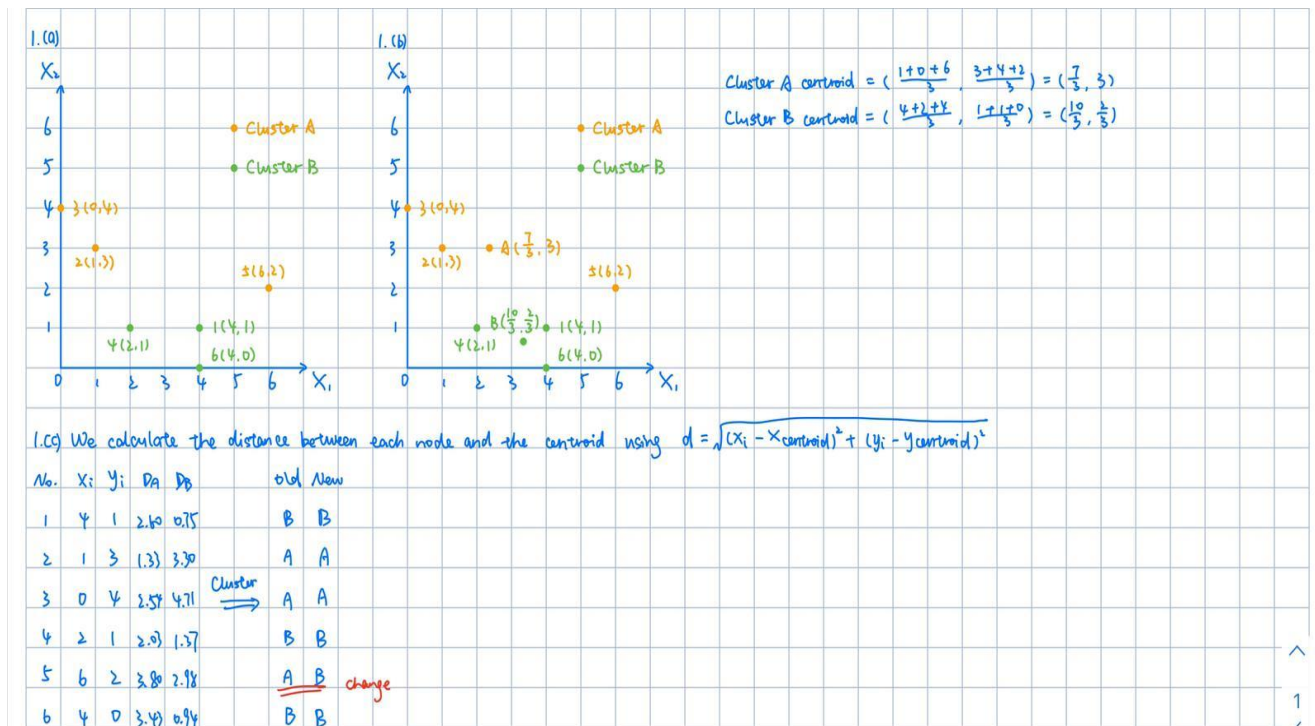 1.(a)
X₂
6
5
4
3
2
1
0 1 2 3 4 5 6 X₁
Cluster A
Cluster B
3(0,4)
2(1,3)
5(6,2)
4(2,1)
1(4,1)
6(4,0)
1.(b)
X₂
6
5
4
3
2
1
0 1 2 3 4 5 6 X₁
Cluster A
Cluster B
3(0,4)
2(1,3)
A(7/3, 3)
5(6,2)
4(2,1)
B(10/3, 2/3)
1(4,1)
6(4,0)
Cluster A centroid = ( (1+0+6)/3 , (3+4+2)/3 ) = (7/3, 3)
Cluster B centroid = ( (4+2+4)/3 , (1+1+0)/3 ) = (10/3, 2/3)
1.(c) We calculate the distance between each node and the centroid using d = √((xᵢ - Xcentroid)² + (yᵢ - ycentroid)²)
No. Xi yi DA DB old New
1 4 1 2.60 0.75 B B
2 1 3 1.33 3.30 A A
3 0 4 2.54 4.71 Cluster ⇒ A A
4 2 1 2.03 1.37 B B
5 6 2 3.80 2.98 A B change
6 4 0 3.43 0.94 B B
1